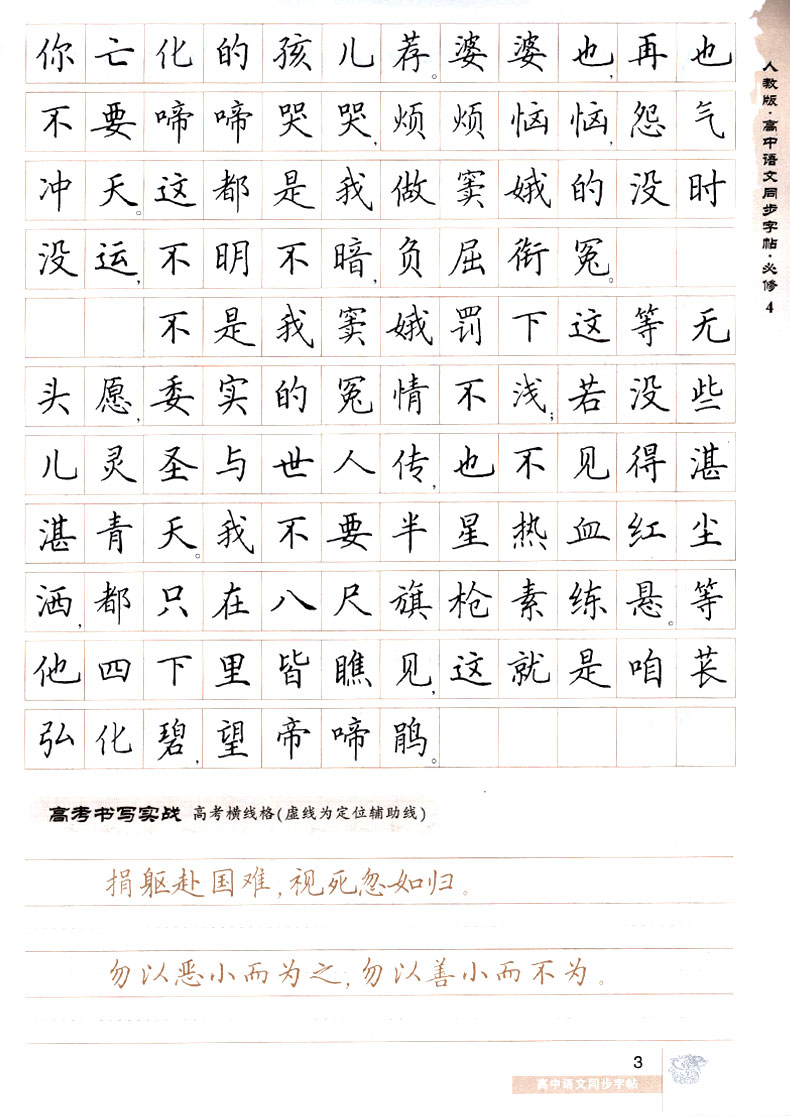 你亡化的孩儿荐。婆婆也,再也
不要啼啼哭哭,烦烦恼恼,怨气
冲天。这都是我做窦娥的没时
没运,不明不暗,负屈衔冤。
不是我窦娥罚下这等无
头愿,委实的冤情不浅;若没些
儿灵圣与世人传,也不见得湛
湛青天。我不要半星热血红尘
洒,都只在八尺旗枪素练悬。等
他四下里皆瞧见,这就是咱苌
弘化碧,望帝啼鹃。
高考书写实战 高考横线格(虚线为定位辅助线)
捐躯赴国难,视死忽如归。
勿以恶小而为之,勿以善小而不为。
3
高中语文同步字帖
人教版·高中语文同步字帖·必修4